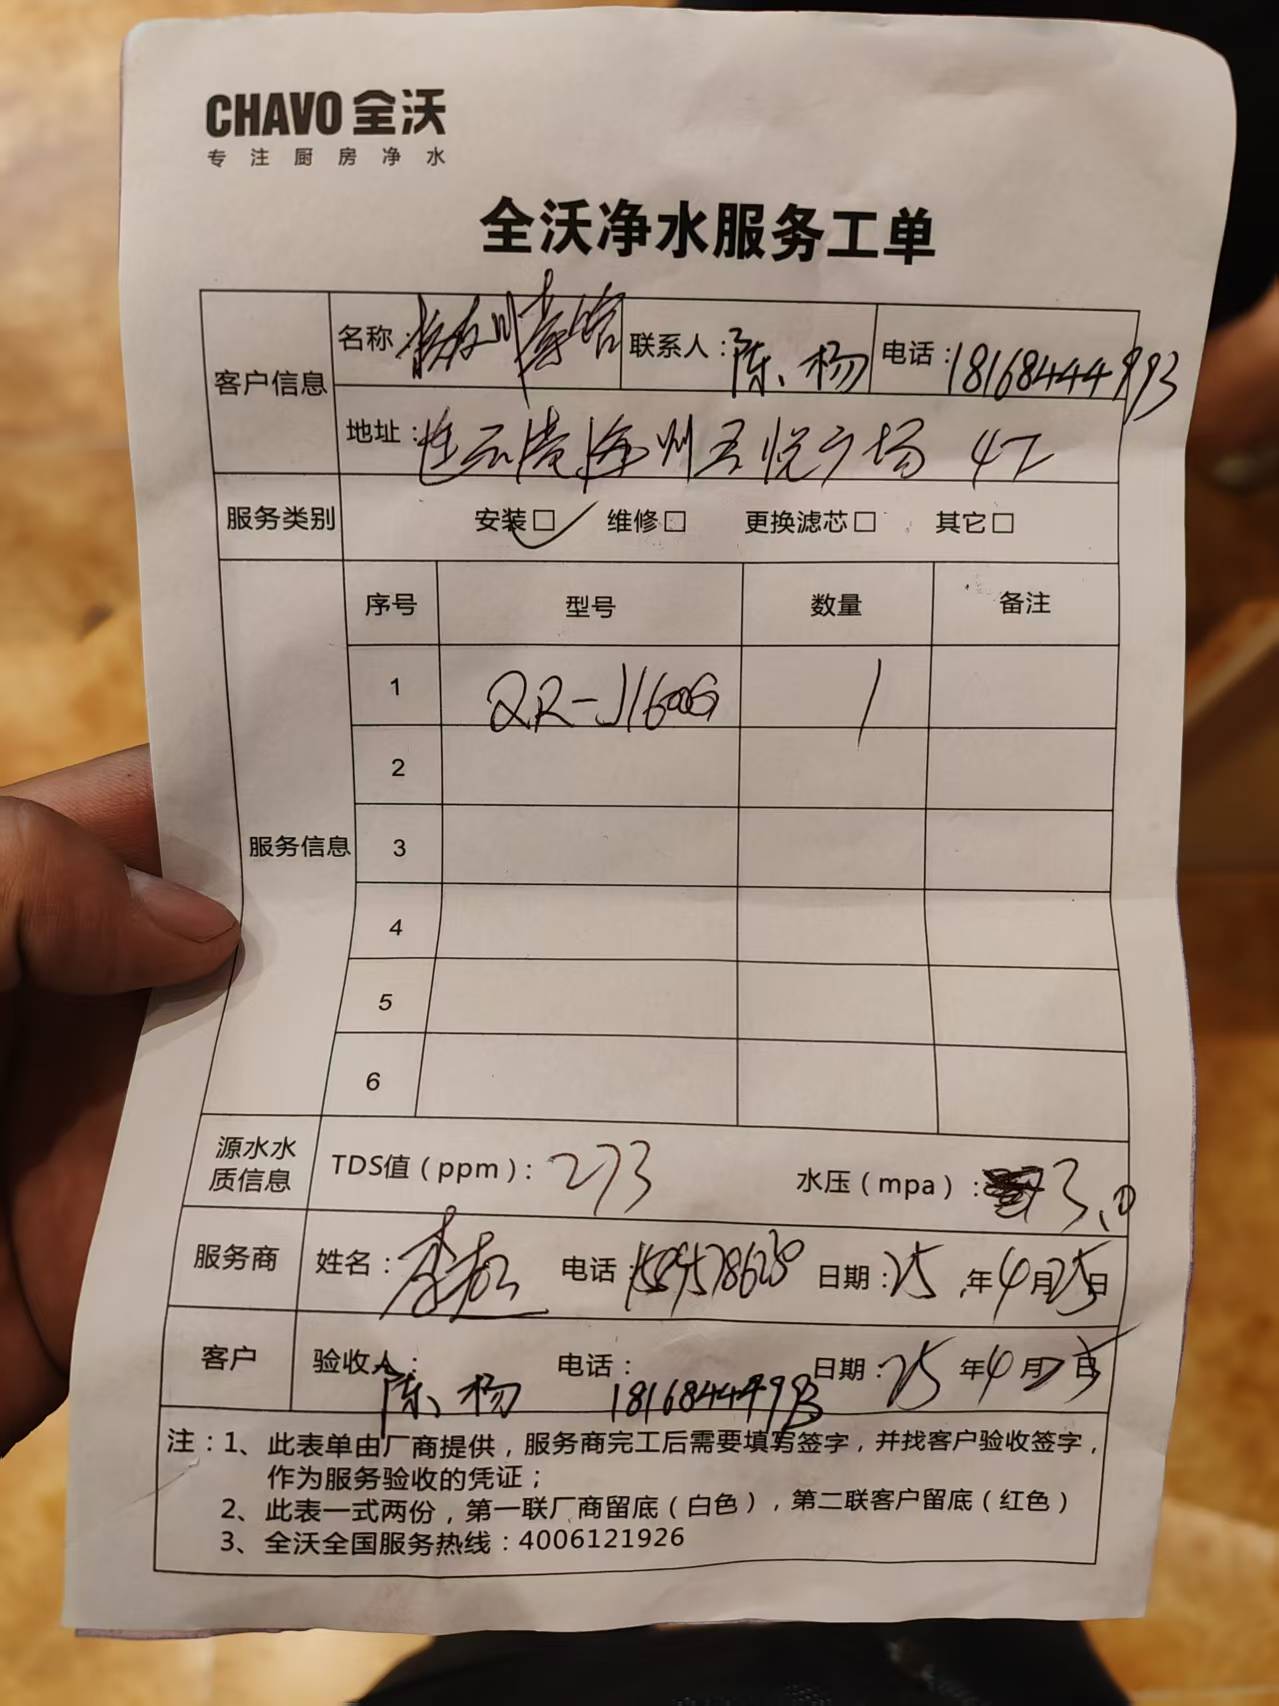 CHAVO 全沃
专注厨房净水
全沃净水服务工单
客户信息
名称： 联系人：陈、杨 电话：18168444993
地址：连云港海州吾悦广场 4F
服务类别 安装□✓ 维修□ 更换滤芯□ 其它□
服务信息
序号 型号 数量 备注
1 QR-J1600G 1
2
3
4
5
6
源水水质信息 TDS值（ppm）：273 水压（mpa）：3.0
服务商 姓名：李 电话： 日期：25年4月25日
客户 验收人：陈、杨 电话：18168444993 日期：25年4月25日
注：1、此表单由厂商提供，服务商完工后需要填写签字，并找客户验收签字，
作为服务验收的凭证；
2、此表一式两份，第一联厂商留底（白色），第二联客户留底（红色）
3、全沃全国服务热线：4006121926